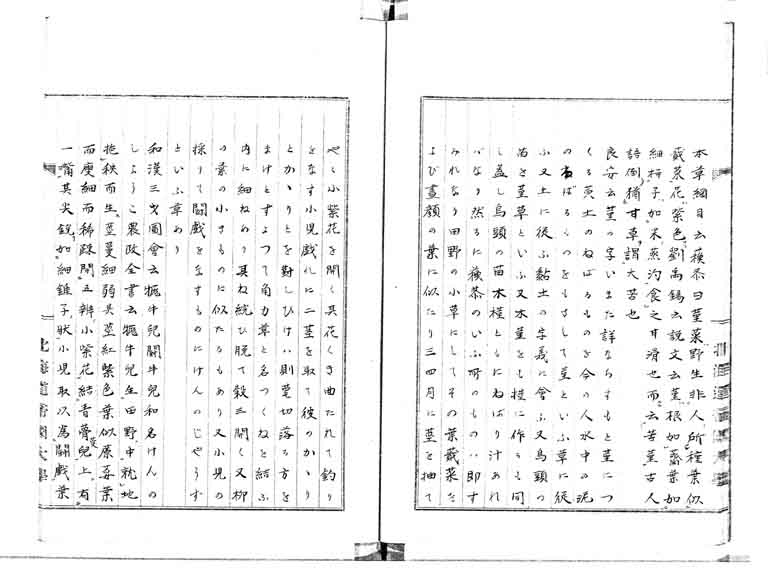 本草綱目云蘓恭曰菫菜野生非人所種葉似
蕺菜花紫色劉禹錫云說文云菫根如薺葉如
細柳子如米蒸汋食之甘滑也而云苦菫古人
語倒猶甘草謂大苦也
良安云菫の字いまた詳ならすもと菫につ
くる黄土のねばるものを今の人水中の泥
のねばるものをもさして菫といふ草に従
ふ又土に従ふ黏土の字義に會ふ又烏頭の
苗を菫草といふ又木菫をも槿に作るも同
し盖し烏頭の苗木槿ともにねばり汁あれ
バなり然るに蘓恭のいふ所のもの即す
みれなり田野の小草にしてその葉蕺菜た
よび晝顔の葉に似たり三四月に莖を抽て
やゝ小紫花を開く其花くき曲たれて釣り
をなす小児戯れに二莖を取て彼のかゝり
とかゝりとを對しひけハ則莖切落る方を
まけとすよつて角力草と名つくねを結ふ
内に細ねあり其ね統ひ脱て殻三開く又柳
の葉の小きものに似たるもあり又小児の
採りて闘戯をなすものにけんのじやうす
といふ草あり
和漢三才圖會云牻牛兒闘牛兒和名けんの
しようこ農政全書云牻牛兒生田野中就地
拖秧而生莖蔓細弱其莖紅紫色葉似原荽葉
而瘦細而稀踈開五辨小紫花結青蓇葖兒上有
一觜其尖銳如細錐子狀小児取以為闘戯葉